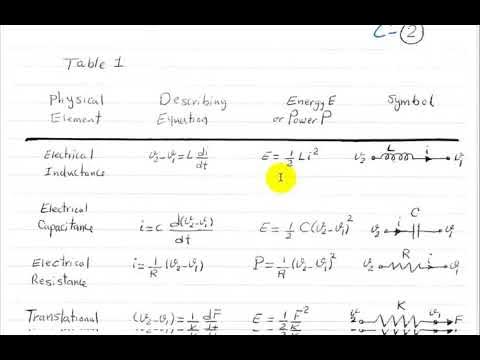 C-②
Table 1
Physical Element Describing Equation Energy E or Power P Symbol
Electrical Inductance v₂-v₁ = L di/dt E = 1/2 L i² v₂ L i v₁
Electrical Capacitance i = C d(v₂-v₁)/dt E = 1/2 C(v₂-v₁)² v₂ i C v₁
Electrical Resistance i = 1/R (v₂-v₁) P = 1/R (v₂-v₁)² v₂ R i v₁
Translational (v₂-v₁) = 1/K dF/dt E = 1/2 F²/K v₂ K v₁ F